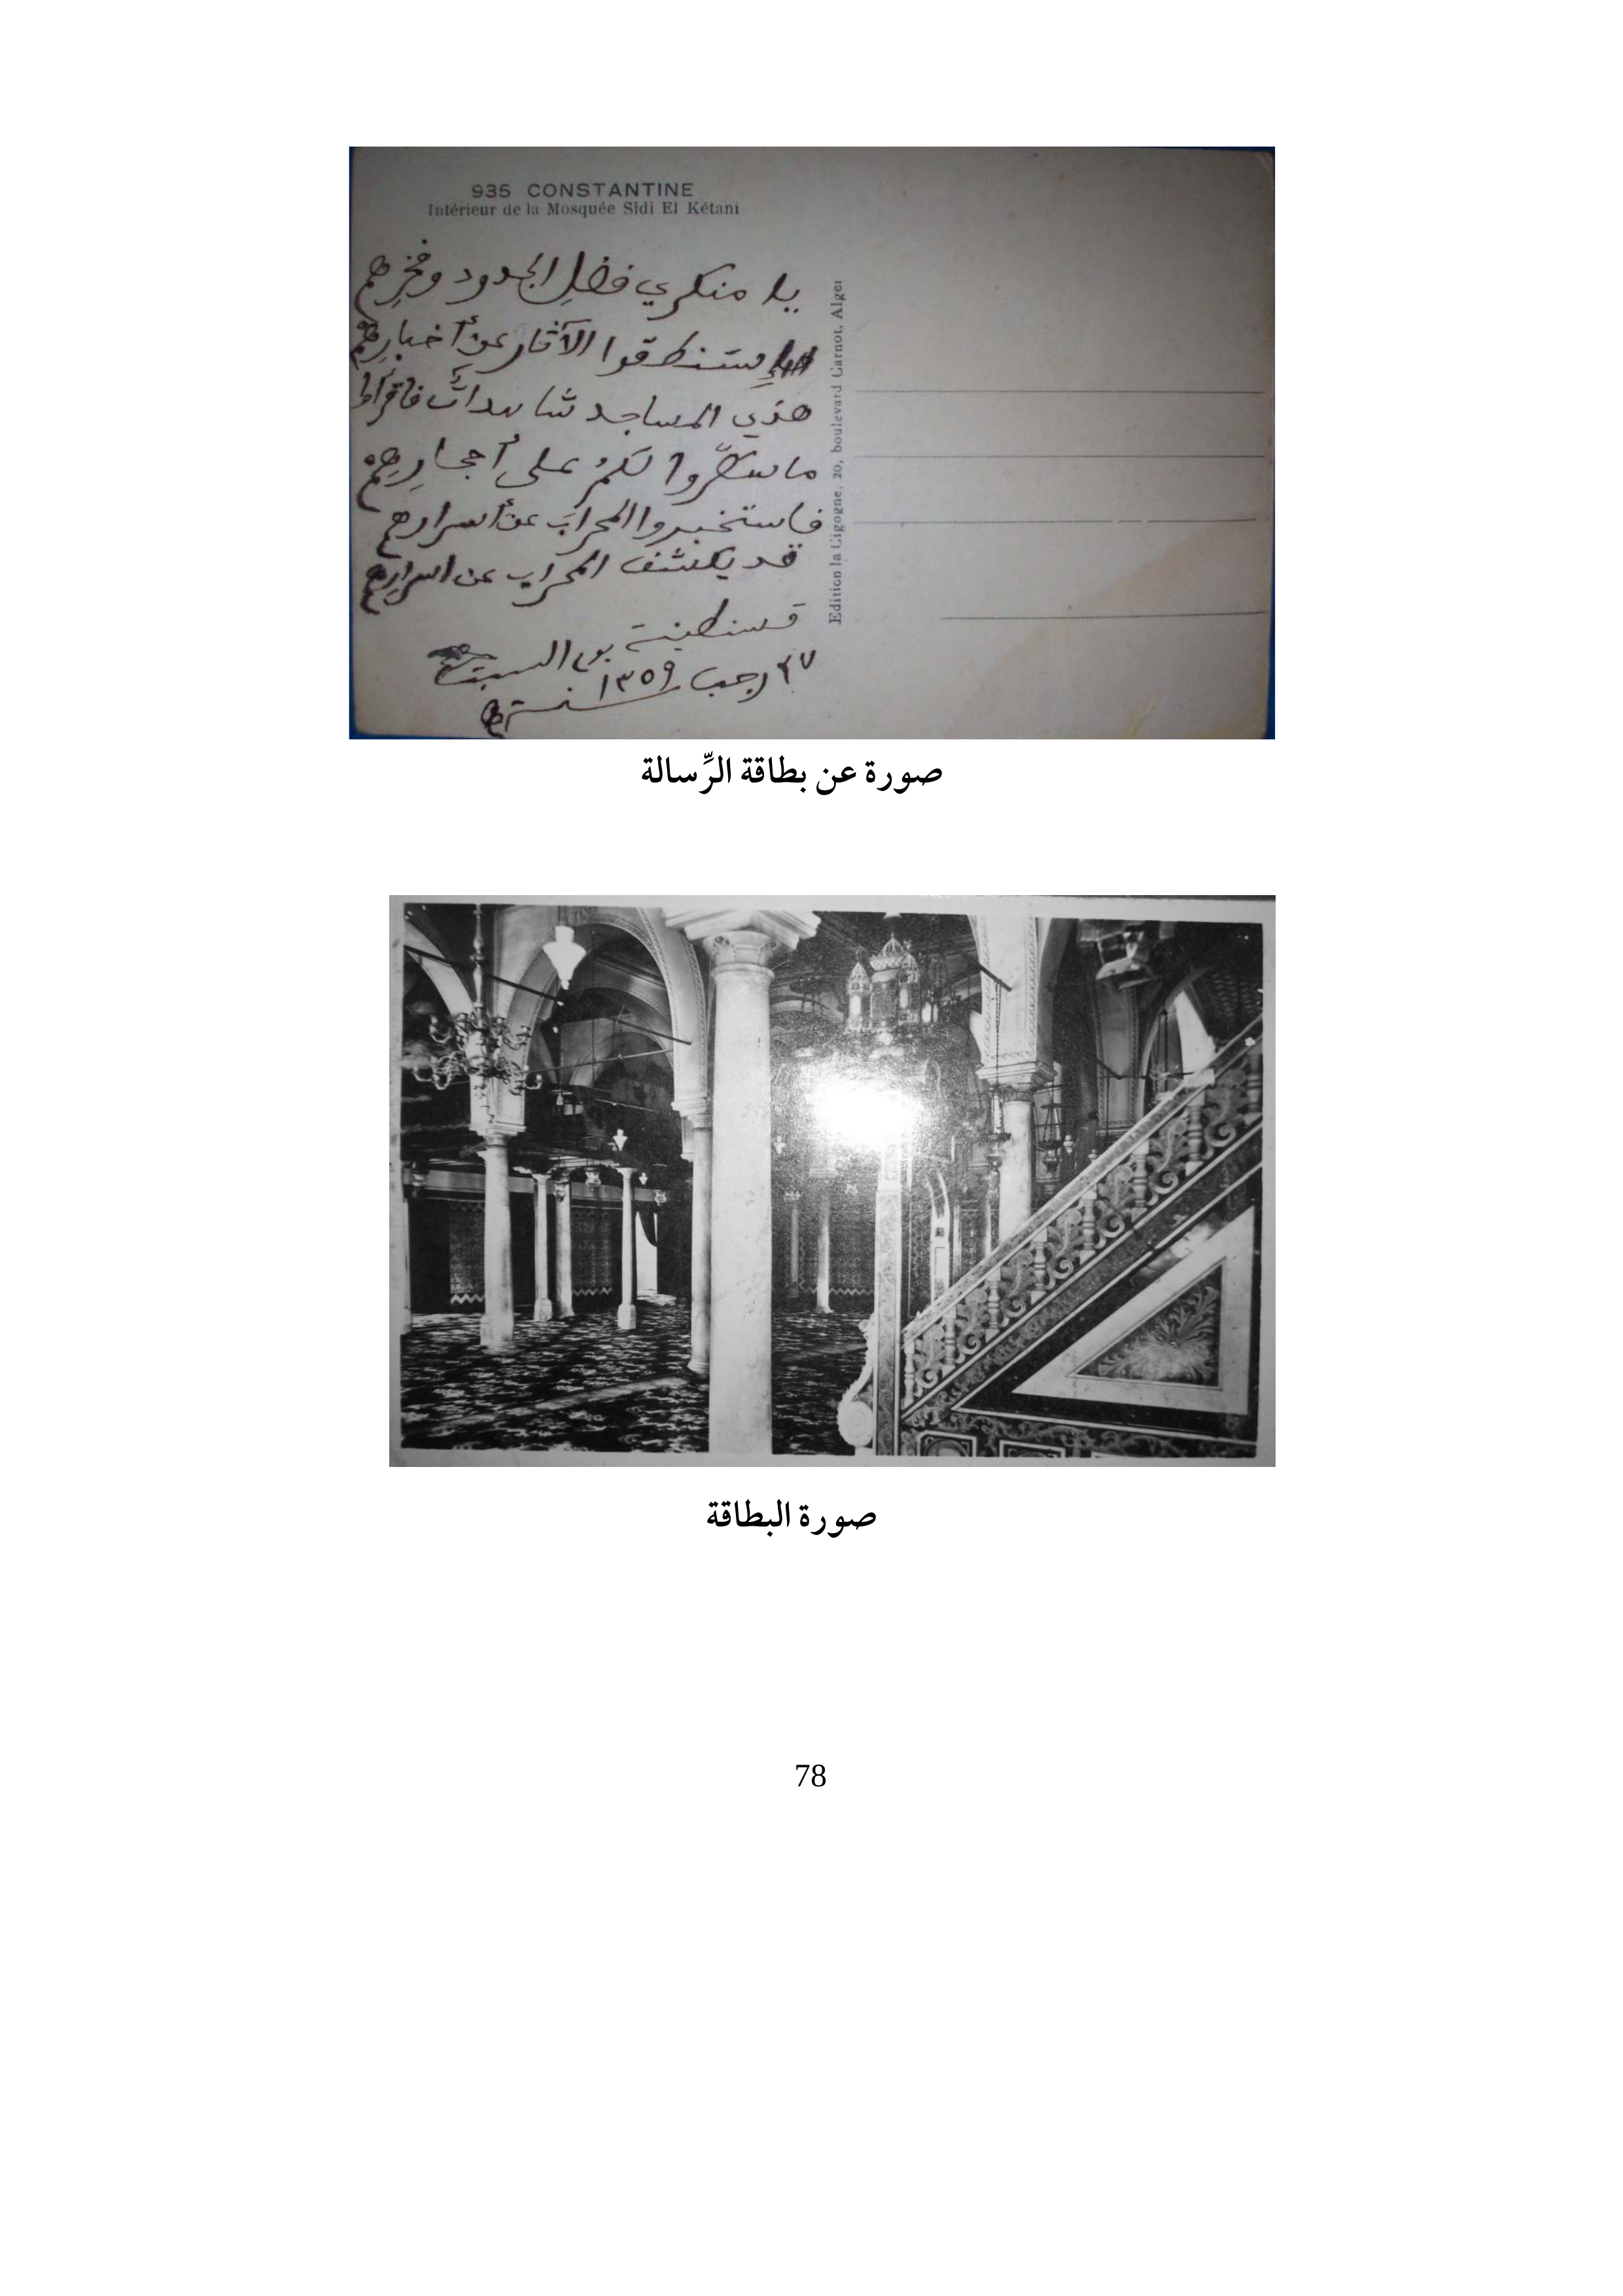 935 CONSTANTINE
Intérieur de la Mosquée Sidi El Kétani
يا منكري فضلِ الجدود وفخرِهم
استنطقوا الآثار عن أخبارِهمْ
هذي المساجد شاهداتٌ فاقرأوا
ما سطَّروا لكمُ على أحجارِهِمْ
فاستخبروا المحرابَ عن أسرارهم
قد يكشف المحراب عن اسرارِهم
قسنطينة يوم السبت
٢٧ رجب ١٣٥٩
سنة
Edition la Cigogne, 20, boulevard Carnot, Alger
صورة عن بطاقة الرِّسالة
صورة البطاقة
78